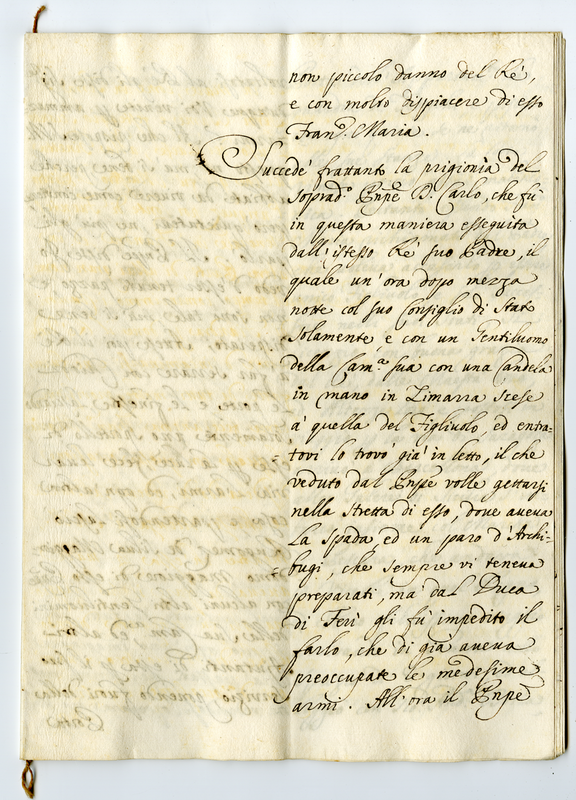 non piccolo danno del Rè,
e con molto dispiacere di esso
Fran.º Maria.
Succedè frattanto la prigionìa del
soprad.º Pnpē D. Carlo, che fù
in questa maniera esseguita
dall'istesso Rè suo Padre, il
quale un'ora dopo mezza
notte col suo Consiglio di Stato
solamente e con un Gentiluomo
della Cam.ª sua con una Candela
in mano in Zimarra scese
à quella del Figliuolo, ed entra-
tovi lo trovò già in letto, il che
veduto dal Pnpē volle gettarsi
nella stretta di esso, dove aveva
la spada, ed un paro d'Archi-
bugi, che sempre vi teneva
preparati, mà dal Duca
di Ferì gli fù impedito il
farlo, che di già aveva
preoccupate le medesime
armi. All'ora il Pnpē